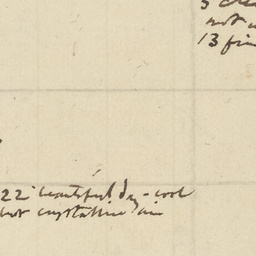 5 clea
not
13 fin
22 beautiful day - cool
but crystalline air